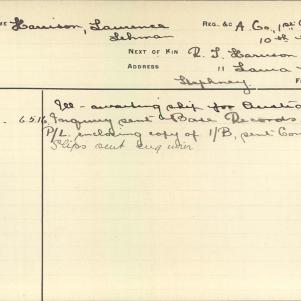 ME Harrison, Laurence
Lehman
REG. &C A. Co., 1st
10th
NEXT OF KIN R. L. Harrison
ADDRESS 11 Laura
Sydney
Ill - awaiting ship for Austra
6.5.16 Inquiry sent Base Records
P/L. enclosing copy of 1/B, sent Con
Slips sent enq